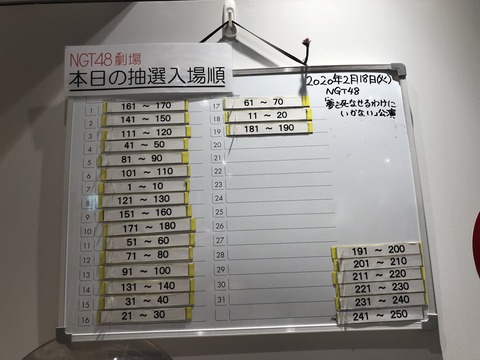 NGT48劇場
本日の抽選入場順
2020年2月18日(火)
NGT48
「夢を死なせるわけに
いかない」公演
1 161 ～ 170
2 141 ～ 150
3 111 ～ 120
4 41 ～ 50
5 81 ～ 90
6 101 ～ 110
7 1 ～ 10
8 121 ～ 130
9 151 ～ 160
10 171 ～ 180
11 51 ～ 60
12 71 ～ 80
13 91 ～ 100
14 131 ～ 140
15 31 ～ 40
16 21 ～ 30
17 61 ～ 70
18 11 ～ 20
19 181 ～ 190
20
21
22
23
24
25
26
27
28
29
30
31
191 ～ 200
201 ～ 210
211 ～ 220
221 ～ 230
231 ～ 240
241 ～ 250